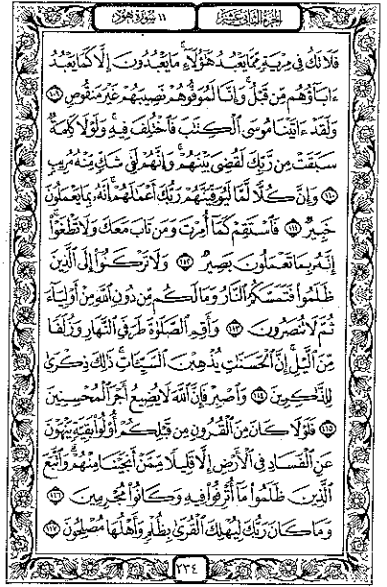 الجزء الثاني عشر ١١ سورة هود
فَلَا تَكُ فِي مِرْيَةٍ مِّمَّا يَعْبُدُ هَٰٓؤُلَآءِ ۚ مَا يَعْبُدُونَ إِلَّا كَمَا يَعْبُدُ
ءَابَآؤُهُم مِّن قَبْلُ ۚ وَإِنَّا لَمُوَفُّوهُمْ نَصِيبَهُمْ غَيْرَ مَنقُوصٍ ١٠٩
وَلَقَدْ ءَاتَيْنَا مُوسَى ٱلْكِتَٰبَ فَٱخْتُلِفَ فِيهِ ۚ وَلَوْلَا كَلِمَةٌ
سَبَقَتْ مِن رَّبِّكَ لَقُضِىَ بَيْنَهُمْ ۚ وَإِنَّهُمْ لَفِى شَكٍّ مِّنْهُ مُرِيبٍ
١١٠ وَإِنَّ كُلًّا لَّمَّا لَيُوَفِّيَنَّهُمْ رَبُّكَ أَعْمَٰلَهُمْ ۚ إِنَّهُۥ بِمَا يَعْمَلُونَ
خَبِيرٌ ١١١ فَٱسْتَقِمْ كَمَآ أُمِرْتَ وَمَن تَابَ مَعَكَ وَلَا تَطْغَوْا۟ ۚ
إِنَّهُۥ بِمَا تَعْمَلُونَ بَصِيرٌ ١١٢ وَلَا تَرْكَنُوٓا۟ إِلَى ٱلَّذِينَ
ظَلَمُوا۟ فَتَمَسَّكُمُ ٱلنَّارُ وَمَا لَكُم مِّن دُونِ ٱللَّهِ مِنْ أَوْلِيَآءَ
ثُمَّ لَا تُنصَرُونَ ١١٣ وَأَقِمِ ٱلصَّلَوٰةَ طَرَفَىِ ٱلنَّهَارِ وَزُلَفًا
مِّنَ ٱلَّيْلِ ۚ إِنَّ ٱلْحَسَنَٰتِ يُذْهِبْنَ ٱلسَّيِّـَٔاتِ ۚ ذَٰلِكَ ذِكْرَىٰ
لِلذَّٰكِرِينَ ١١٤ وَٱصْبِرْ فَإِنَّ ٱللَّهَ لَا يُضِيعُ أَجْرَ ٱلْمُحْسِنِينَ
١١٥ فَلَوْلَا كَانَ مِنَ ٱلْقُرُونِ مِن قَبْلِكُمْ أُو۟لُوا۟ بَقِيَّةٍ يَنْهَوْنَ
عَنِ ٱلْفَسَادِ فِى ٱلْأَرْضِ إِلَّا قَلِيلًا مِّمَّنْ أَنجَيْنَا مِنْهُمْ ۗ وَٱتَّبَعَ
ٱلَّذِينَ ظَلَمُوا۟ مَآ أُتْرِفُوا۟ فِيهِ وَكَانُوا۟ مُجْرِمِينَ ١١٦
وَمَا كَانَ رَبُّكَ لِيُهْلِكَ ٱلْقُرَىٰ بِظُلْمٍ وَأَهْلُهَا مُصْلِحُونَ ١١٧
٢٣٤